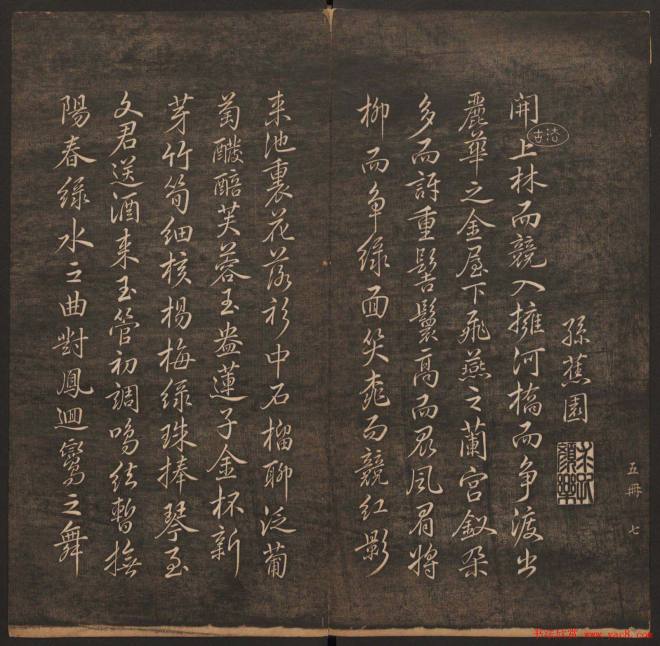 五冊 七
孫蕉園
開上林而競入擁河橋而爭渡出
麗華之金屋下飛燕之蘭宮釵朵
多而訝重髻鬟高而畏風眉將
柳而爭綠面笑桃而競紅影
來池裏花落衫中石榴聊泛葡
萄醱醅芙蓉玉盎蓮子金杯新
芽竹筍細核楊梅綠珠捧琴至
文君送酒來玉管初調鳴絃暫撫
陽春綠水之曲對鳳迴鸞之舞
书法欣赏 www.yac8.com